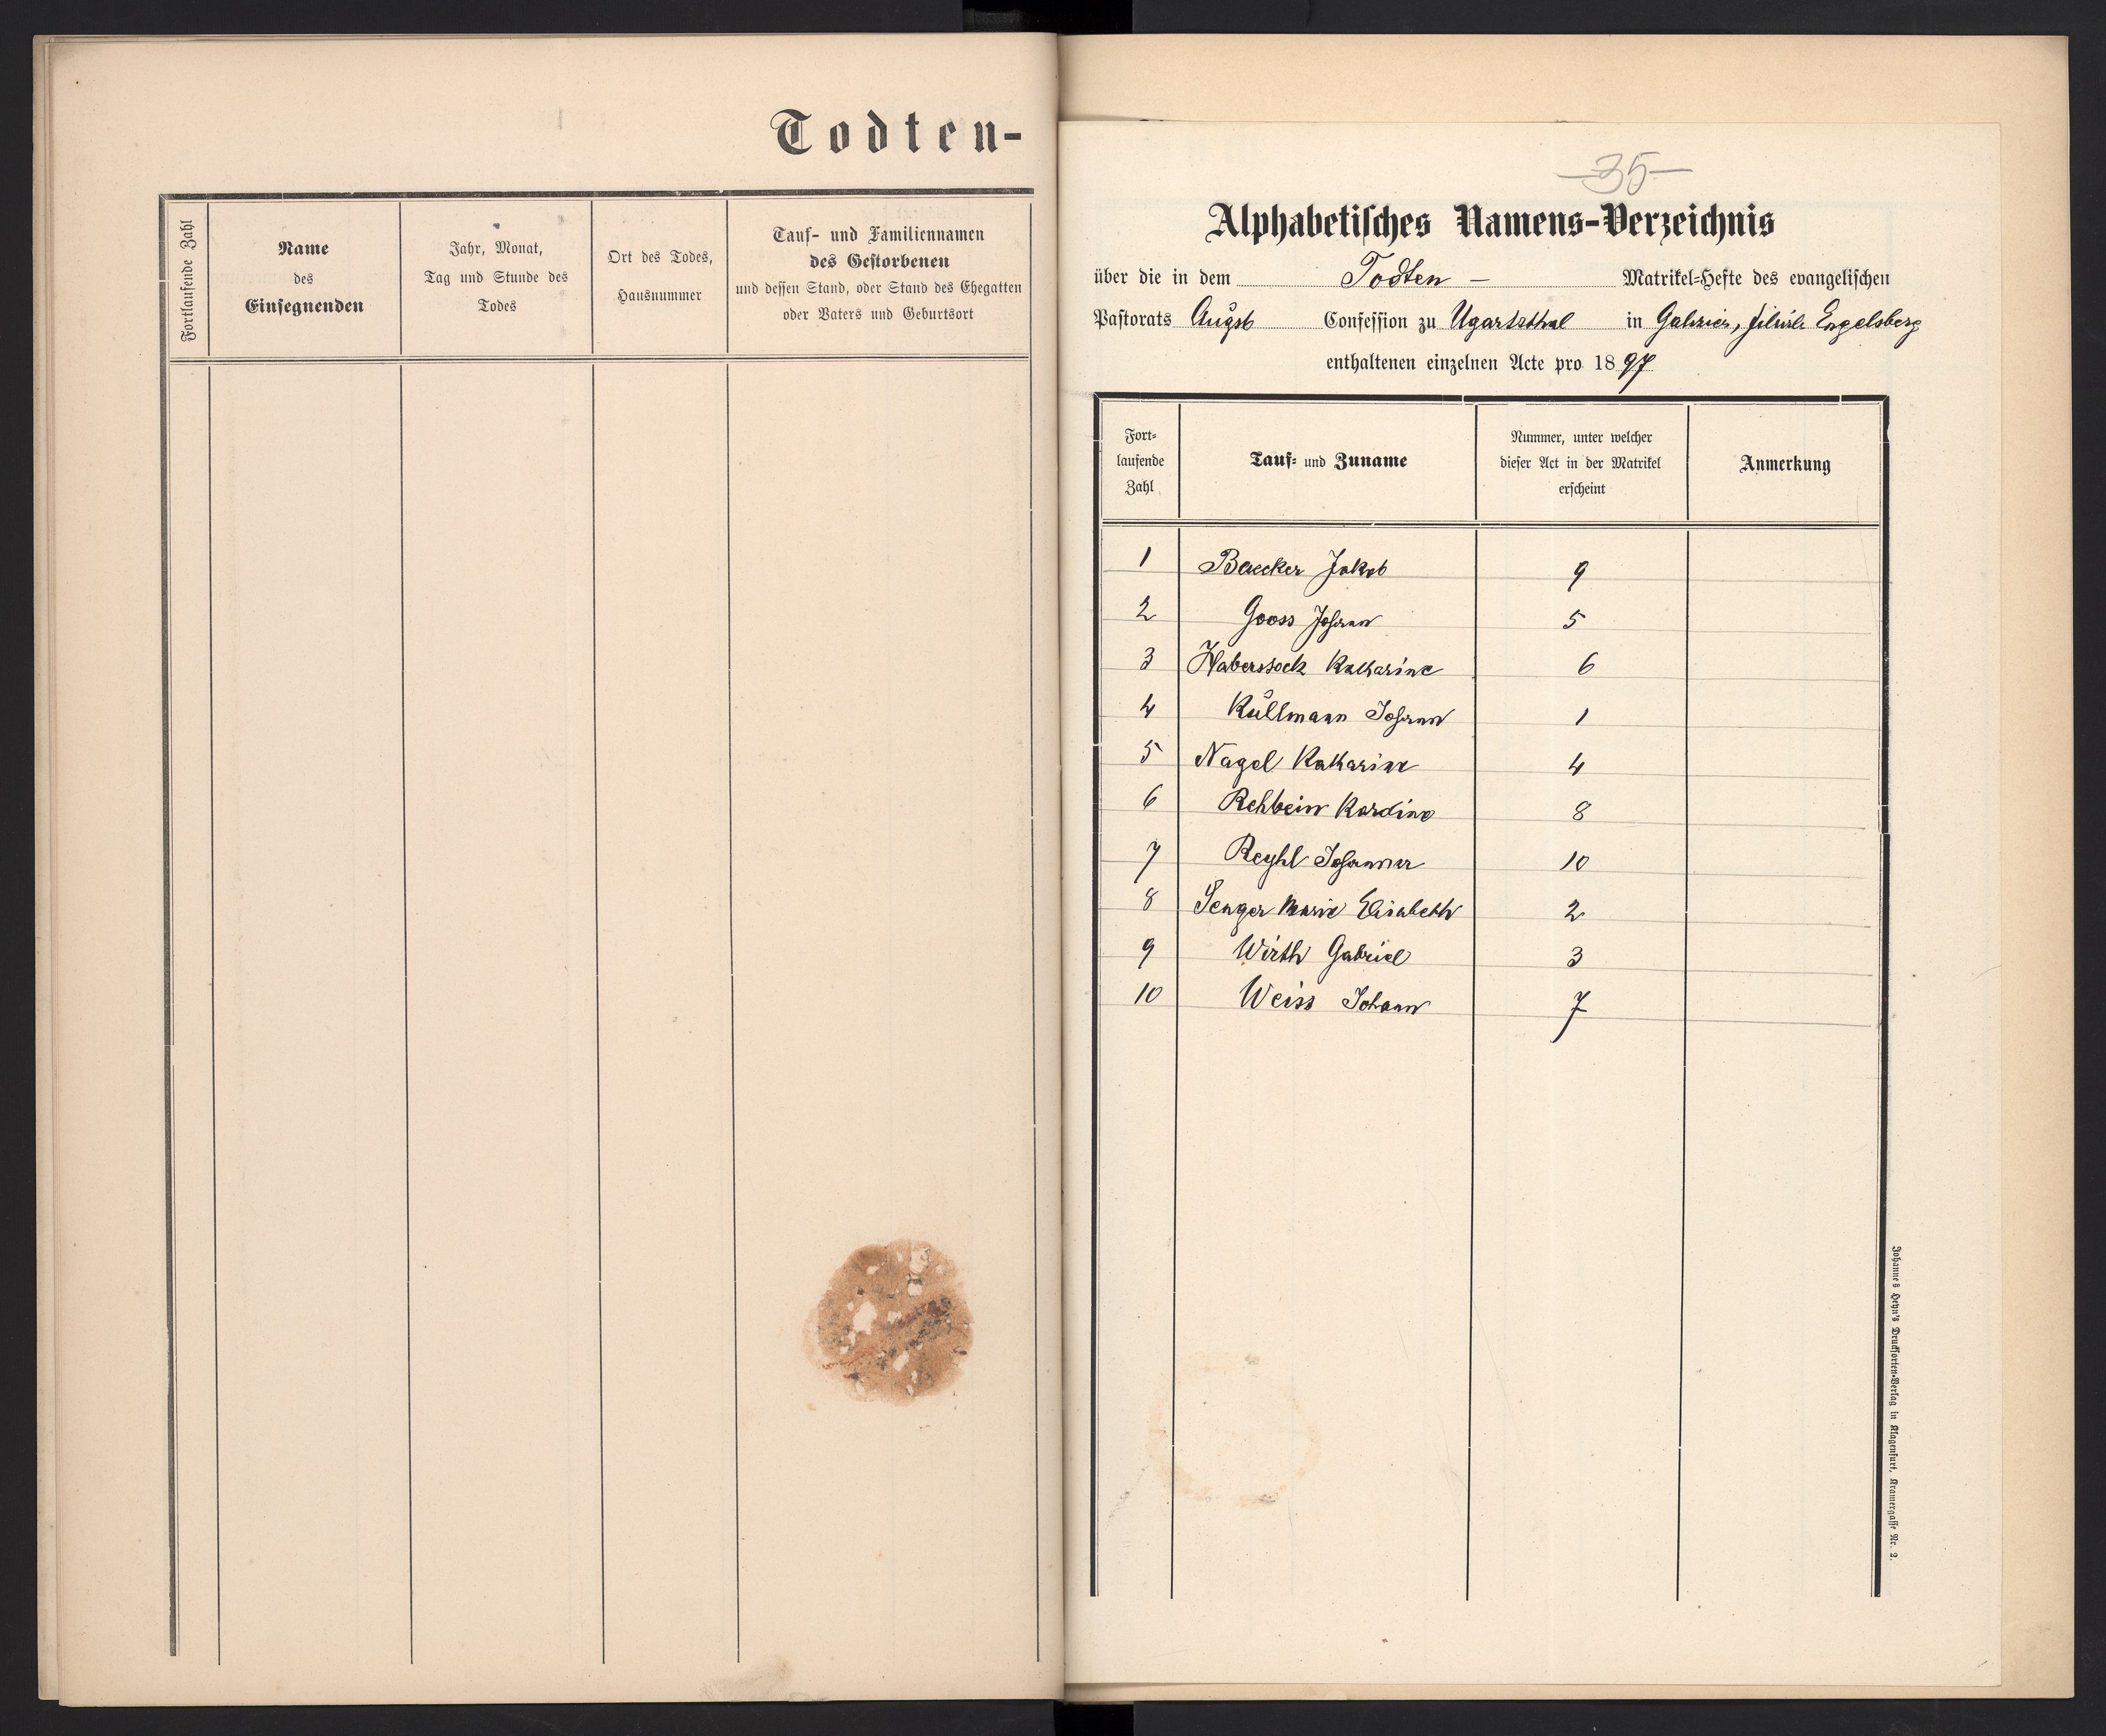 Todten-
Fortlaufende Zahl
Name
des
Einsegnenden
Jahr, Monat,
Tag und Stunde des
Todes
Ort des Todes,
Hausnummer
Tauf- und Familiennamen
des Gestorbenen
und dessen Stand, oder Stand des Ehegatten
oder Vaters und Geburtsort
-35-
Alphabetisches Namens-Verzeichnis
über die in dem Todten - Matrikel-Hefte des evangelischen
Pastorats Augsb Confession zu Ugartsthal in Galizien, Engelsberg
enthaltenen einzelnen Acte pro 1897
Fort-
laufende
Zahl
Tauf- und Zuname
Nummer, unter welcher
dieser Act in der Matrikel
erscheint
Anmerkung
1 Baecker Jakob 9
2 Gooss Johann 5
3 Haberstock Katharine 6
4 Kullmann Johann 1
5 Nagel Katharine 4
6 Rehbein Karoline 8
7 Reyhl Johanna 10
8 Senger Marie Elisabeth 2
9 Wirth Gabriel 3
10 Weiss Johann 7
Johannes Heyn's Drucksorten-Verlag in Klagenfurt, Kramergasse Nr. 2.